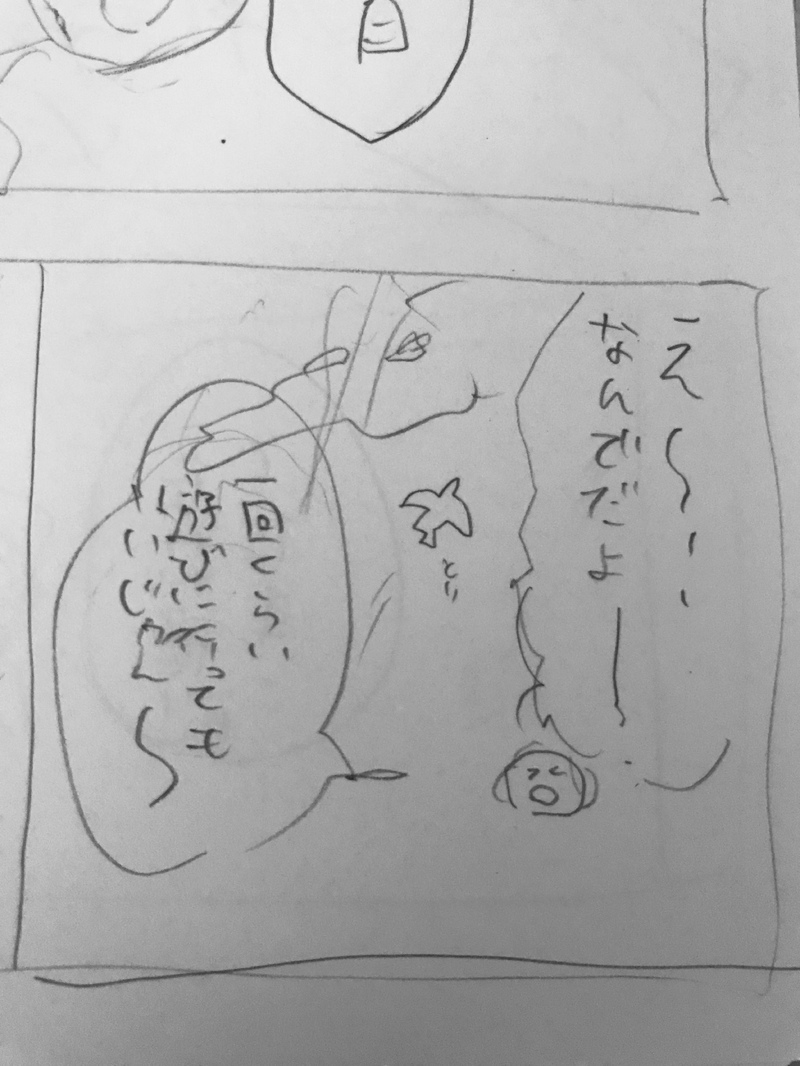 え〜ー
なんでだよー
一回くらい
遊びに行っても
いいじゃん〜